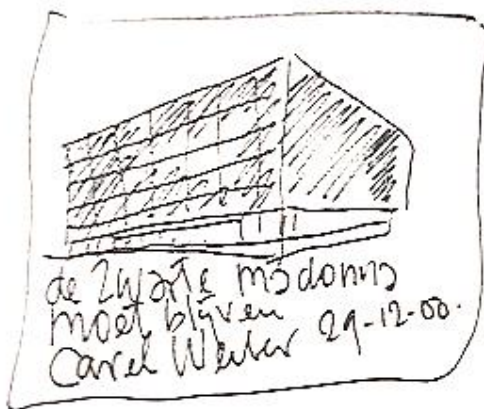 de zwarte madonna
moet blijven
Carel Weeber 29-12-00.